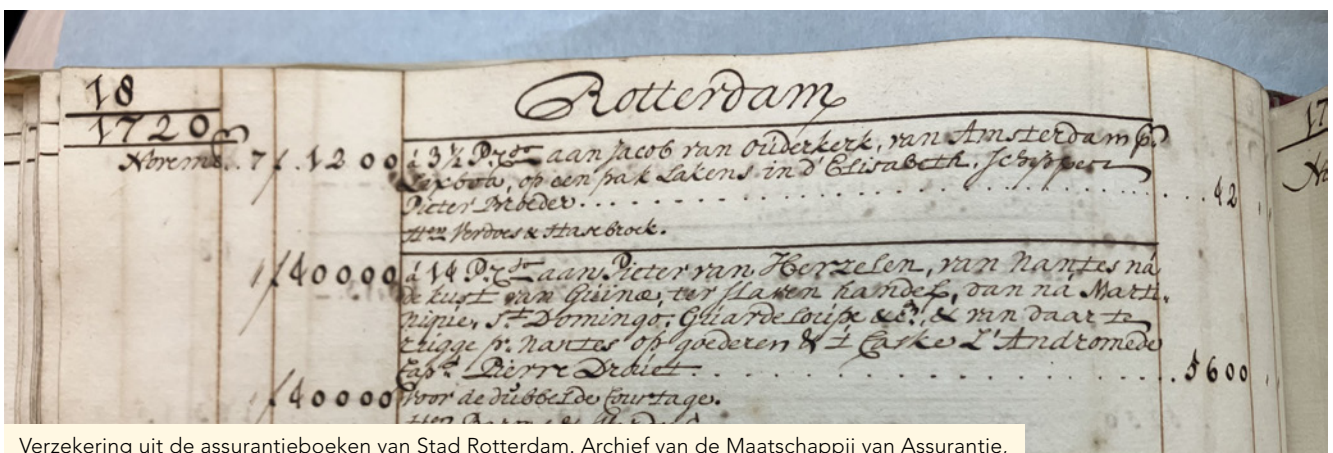 18
Rotterdam
1720
Novemb. 7 f. 1200 á 3½ P.r Cto aan Jacob van Ouderkerk, van Amsterdam p.
Lixboa, op een pak Lakens in d' Elisabeth, Schipper
Pieter . . . . . . . . . . . . . . . . . 42
Hrn Verdoes & Hasebroek.
1 f 40000 á 14 P.r Cto aan Pieter van Herzelen, van Nantes ná
de kust van Guinæ, ter slaven handel, dan ná Marti-
nique, St. Domingo, Guardeloupe &ca, & van daar te
rugge pr. Nantes op goederen & 't Caske L'Andromede
Capt. Pierre Drouet . . . . . . . . . . . . . 5600
1 f 40000 Voor de dubbelde Courtage.
Hrn
Verzekering uit de assurantieboeken van Stad Rotterdam. Archief van de Maatschappij van Assurantie,